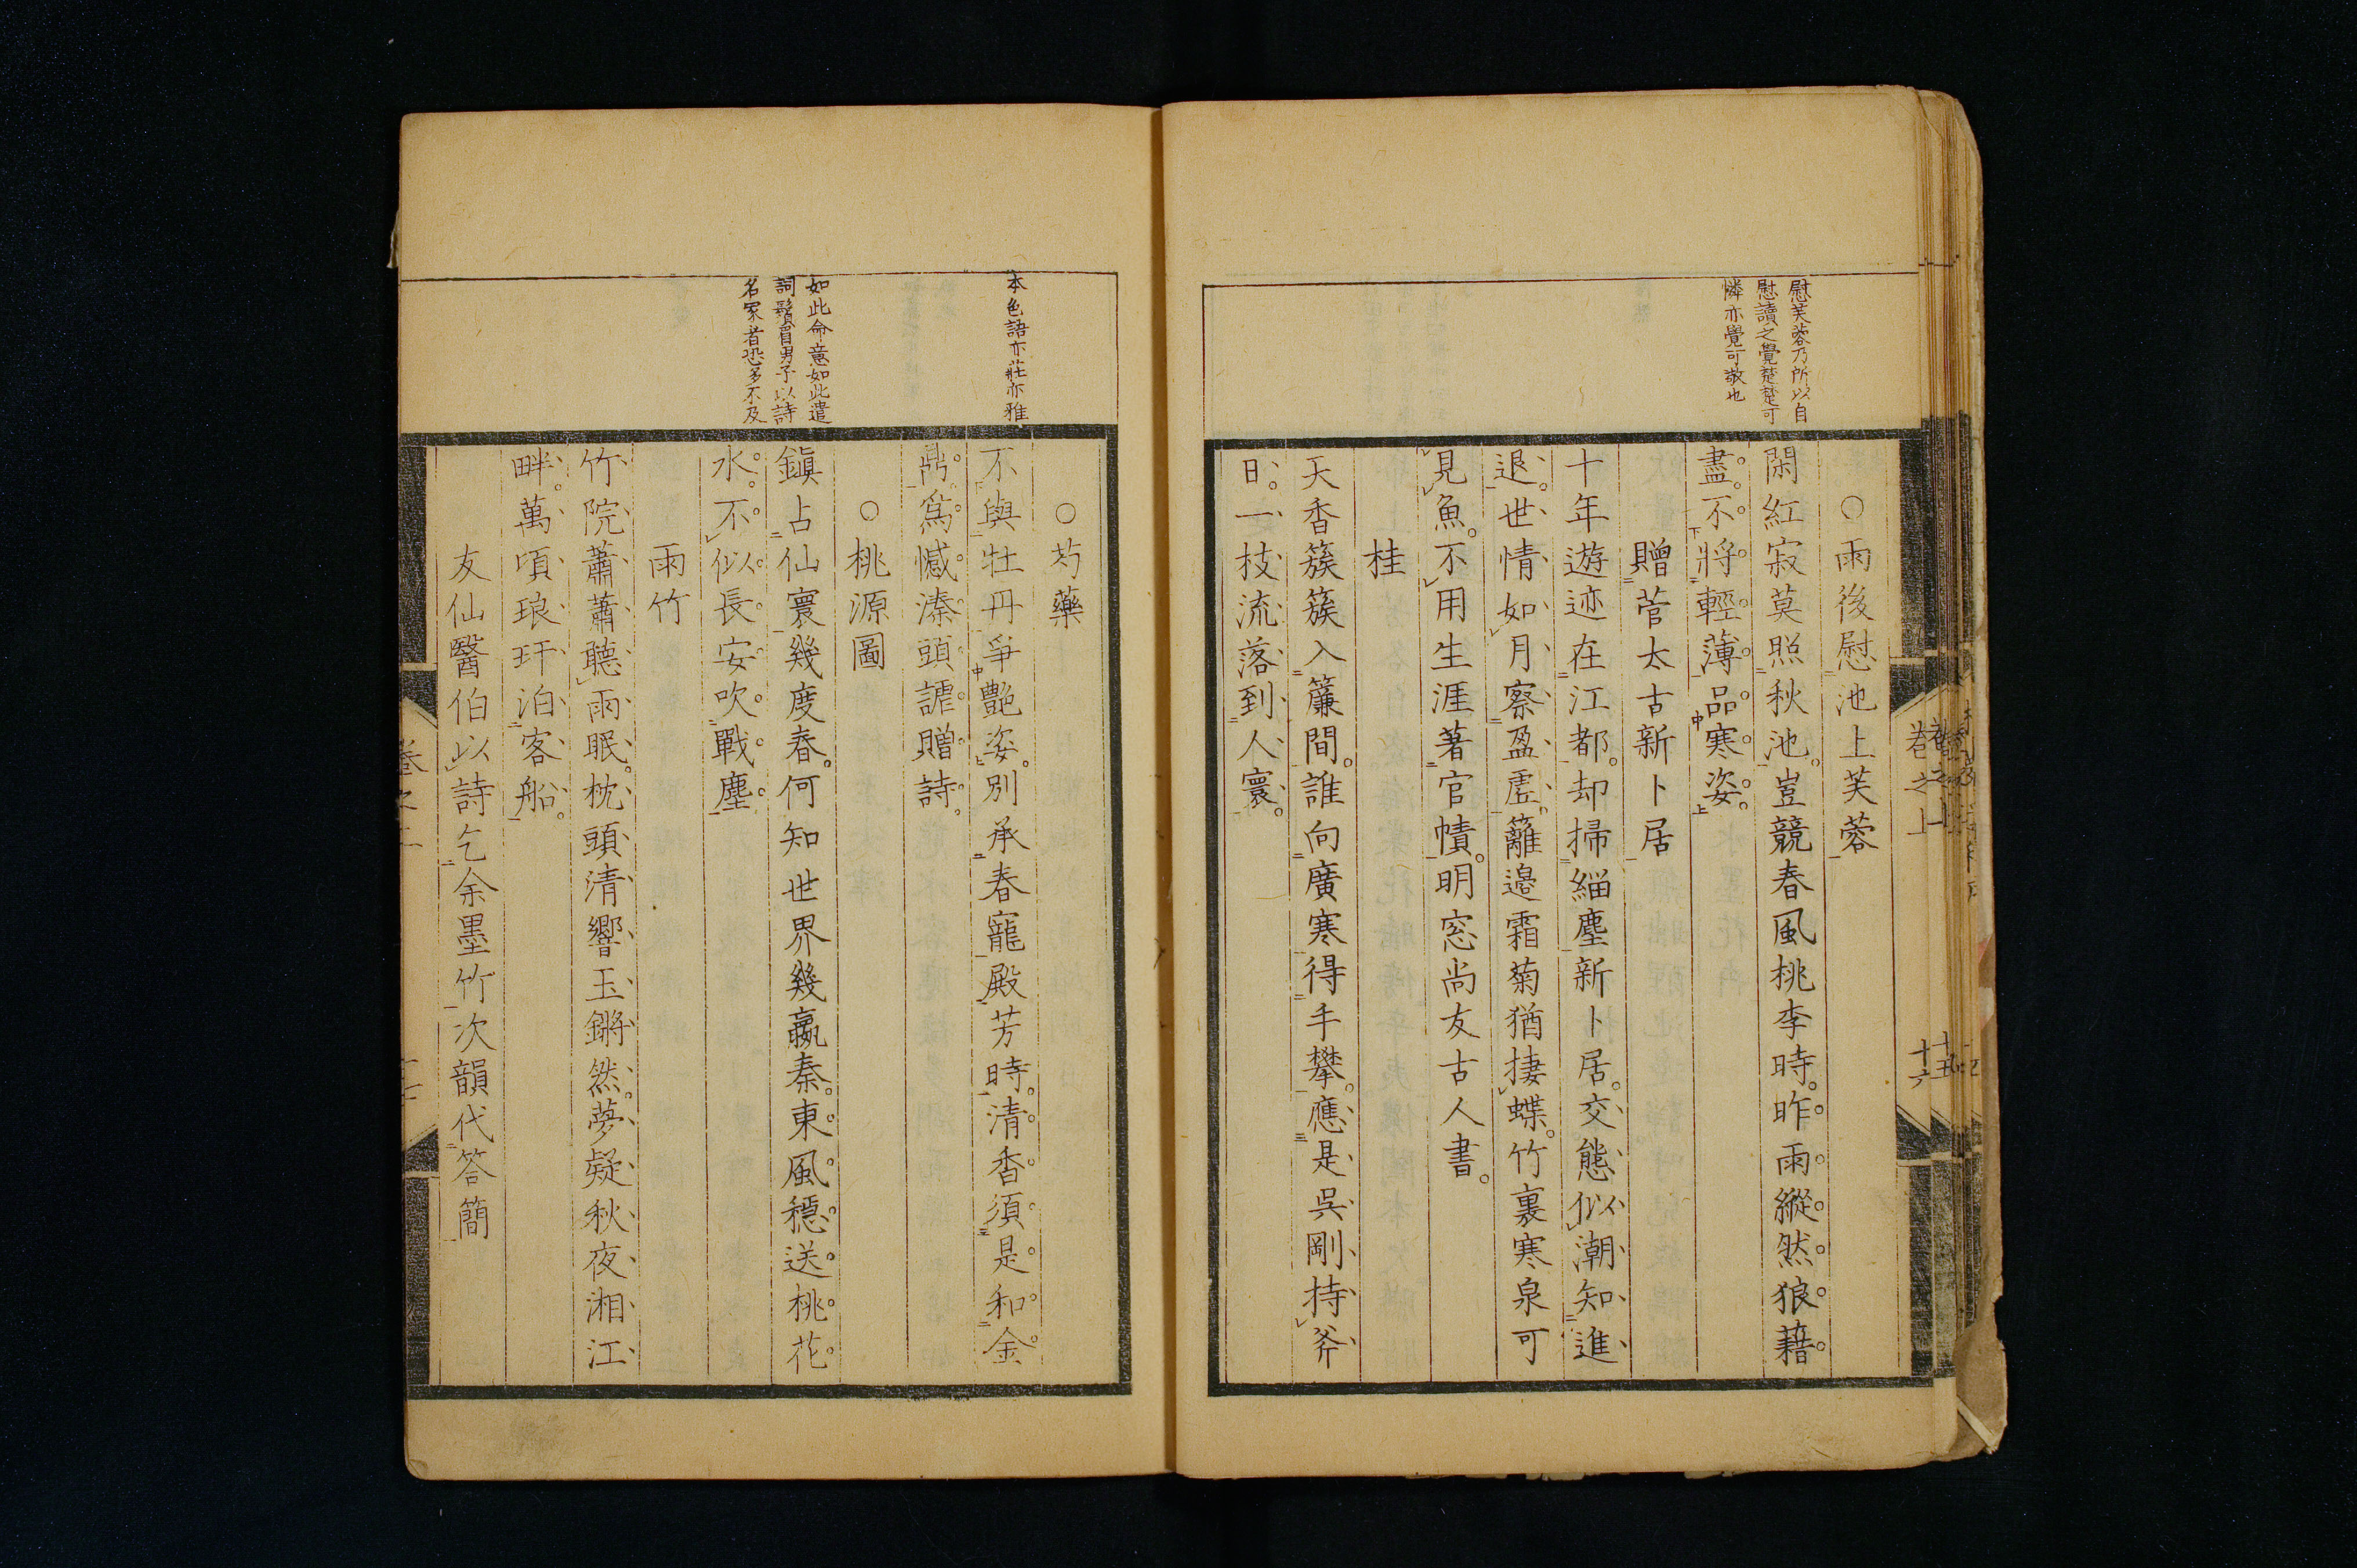 慰芙蓉乃所以自
慰讀之覺楚楚可
憐亦覺可敬也
○雨後慰池上芙蓉
閑紅寂莫照秋池。豈競春風桃李時。昨雨縱然狼藉
盡。不將輕薄品寒姿。
贈菅太古新卜居
十年遊迹在江都。却掃緇塵新卜居。交態似潮知進
退。世情如月察盈虛。籬邊霜菊猶捿蝶。竹裏寒泉可
見魚。不用生涯著官幘。明窓尚友古人書。
桂
天香簇簇入簾間。誰向廣寒得手攀。應是吳剛持斧
日。一枝流落到人寰。
卷之上
十六
本色語亦莊亦雅
○芍藥
不與牡丹爭艷姿。別承春寵殿芳時。清香須是和金
鼎。爲憾溱頭謔贈詩。
如此命意如此遣
詞鬚眉男子以詩
名家者恐多不及
○桃源圖
鎭占仙寰幾度春。何知世界幾嬴秦。東風穩送桃花
水。不似長安吹戰塵。
雨竹
竹院蕭蕭聽雨眠。枕頭清響玉鏘然。夢凝秋夜湘江
畔。萬頃琅玕泊客船。
友仙醫伯以詩乞余墨竹次韻代答簡